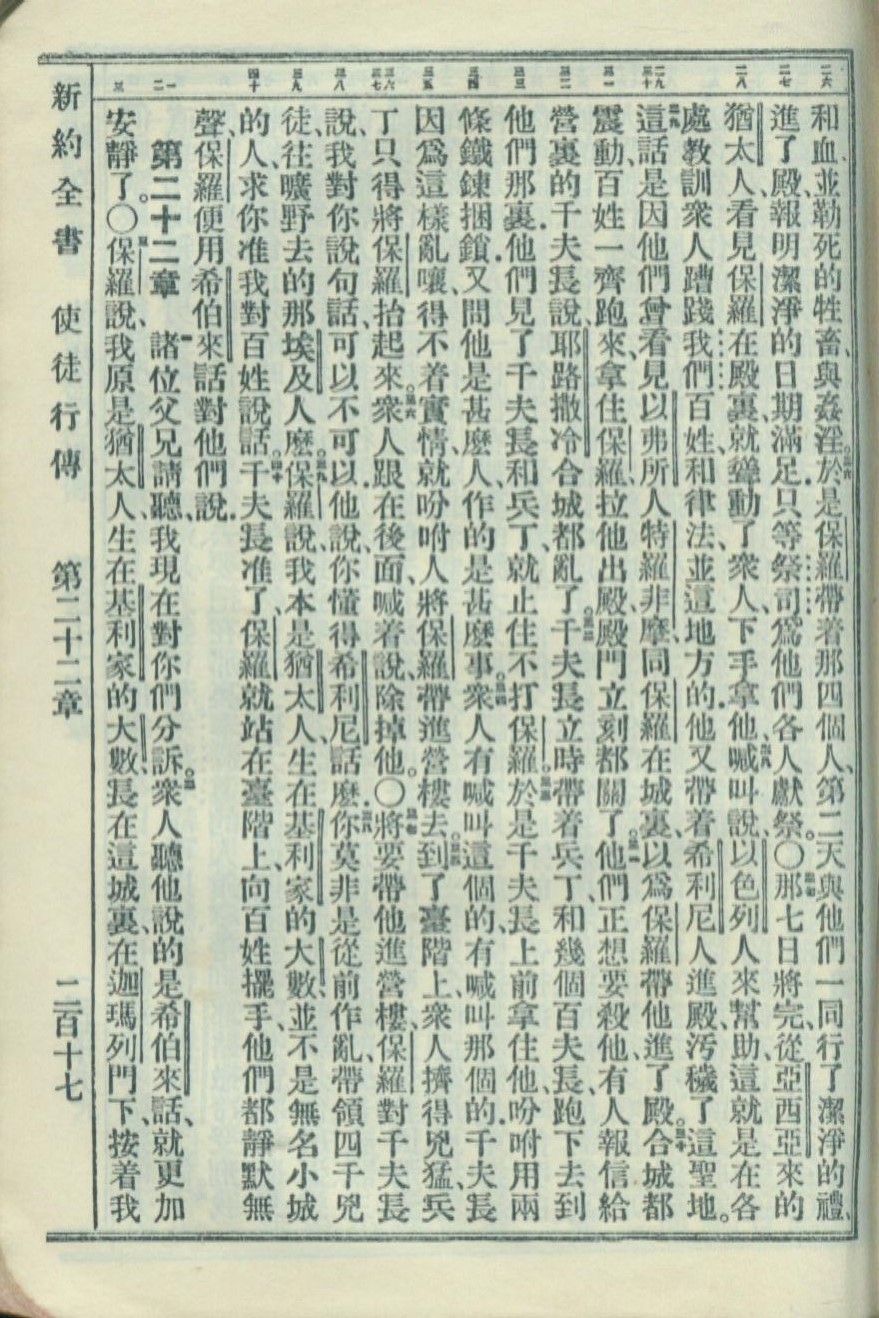 二六 二七 二八 二九 三十 三一 三二 三三 三四 三五 三六 三七 三八 三九 四十 一 二 三
和血、並勒死的牲畜、與姦淫。於是保羅帶着那四個人、第二天與他們一同行了潔淨的禮、
進了殿、報明潔淨的日期滿足、只等祭司爲他們各人獻祭。〇那七日將完、從亞西亞來的
猶太人看見保羅在殿裏、就聳動了衆人、下手拿他、喊叫說、以色列人來幫助、這就是在各
處教訓衆人蹧踐我們百姓、和律法、並這地方的、他又帶着希利尼人進殿、汚穢了這聖地。
這話是因他們曾看見以弗所人特羅非摩、同保羅在城裏、以爲保羅帶他進了殿。合城都
震動、百姓一齊跑來、拿住保羅、拉他出殿、殿門立刻都關了。他們正想要殺他、有人報信給
營裏的千夫長說、耶路撒冷合城都亂了。千夫長立時帶着兵丁、和幾個百夫長、跑下去到
他們那裏。他們見了千夫長和兵丁、就止住不打保羅。於是千夫長上前拿住他、吩咐用兩
條鐵鍊捆鎖、又問他是甚麽人、作的是甚麽事。衆人有喊叫這個的、有喊叫那個的、千夫長
因爲這樣亂嚷、得不着實情、就吩咐人將保羅帶進營樓去。到了臺階上、衆人擠得兇猛、兵
丁只得將保羅抬起來。衆人跟在後面、喊着說、除掉他。〇將要帶他進營樓、保羅對千夫長
說、我對你說句話、可以不可以、他說、你懂得希利尼話麽。你莫非是從前作亂、帶領四千兇
徒、往曠野去的那埃及人麽。保羅說、我本是猶太人、生在基利家的大數、並不是無名小城
的人、求你准我對百姓說話。千夫長准了、保羅就站在臺階上、向百姓擺手、他們都靜默無
聲、保羅便用希伯來話對他們說.
第二十二章 諸位父兄請聽、我現在對你們分訴。衆人聽他說的是希伯來話、就更加
安靜了。〇保羅說、我原是猶太人、生在基利家的大數、長在這城裏、在迦瑪列門下、按着我
新約全書 使徒行傳 第二十二章 二百十七